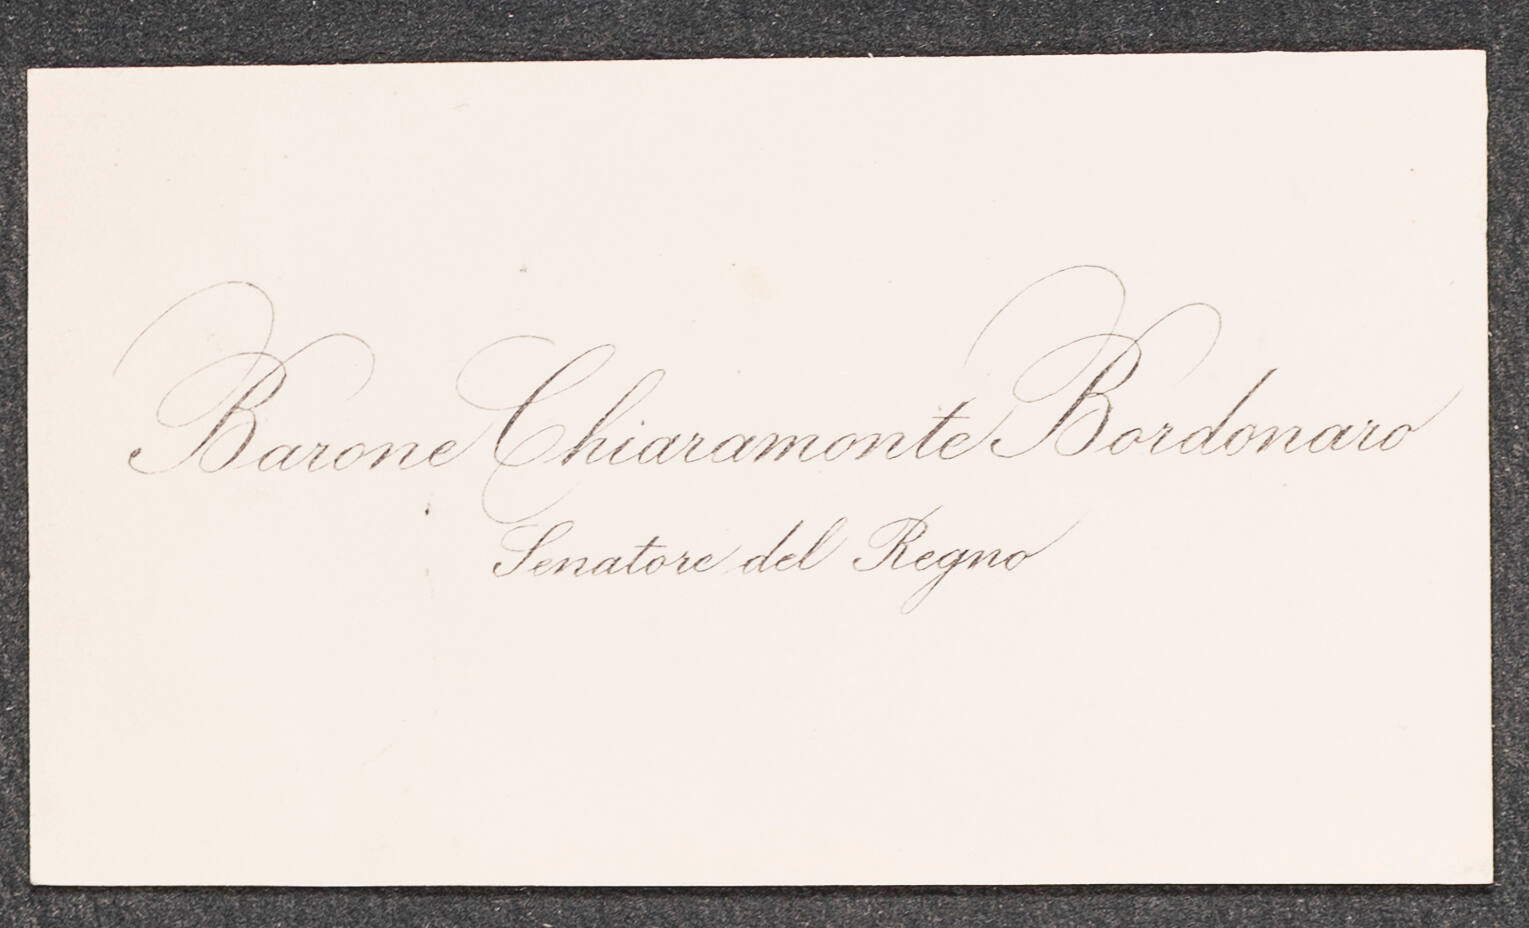 Barone Chiaramonte Bordonaro
Senatore del Regno